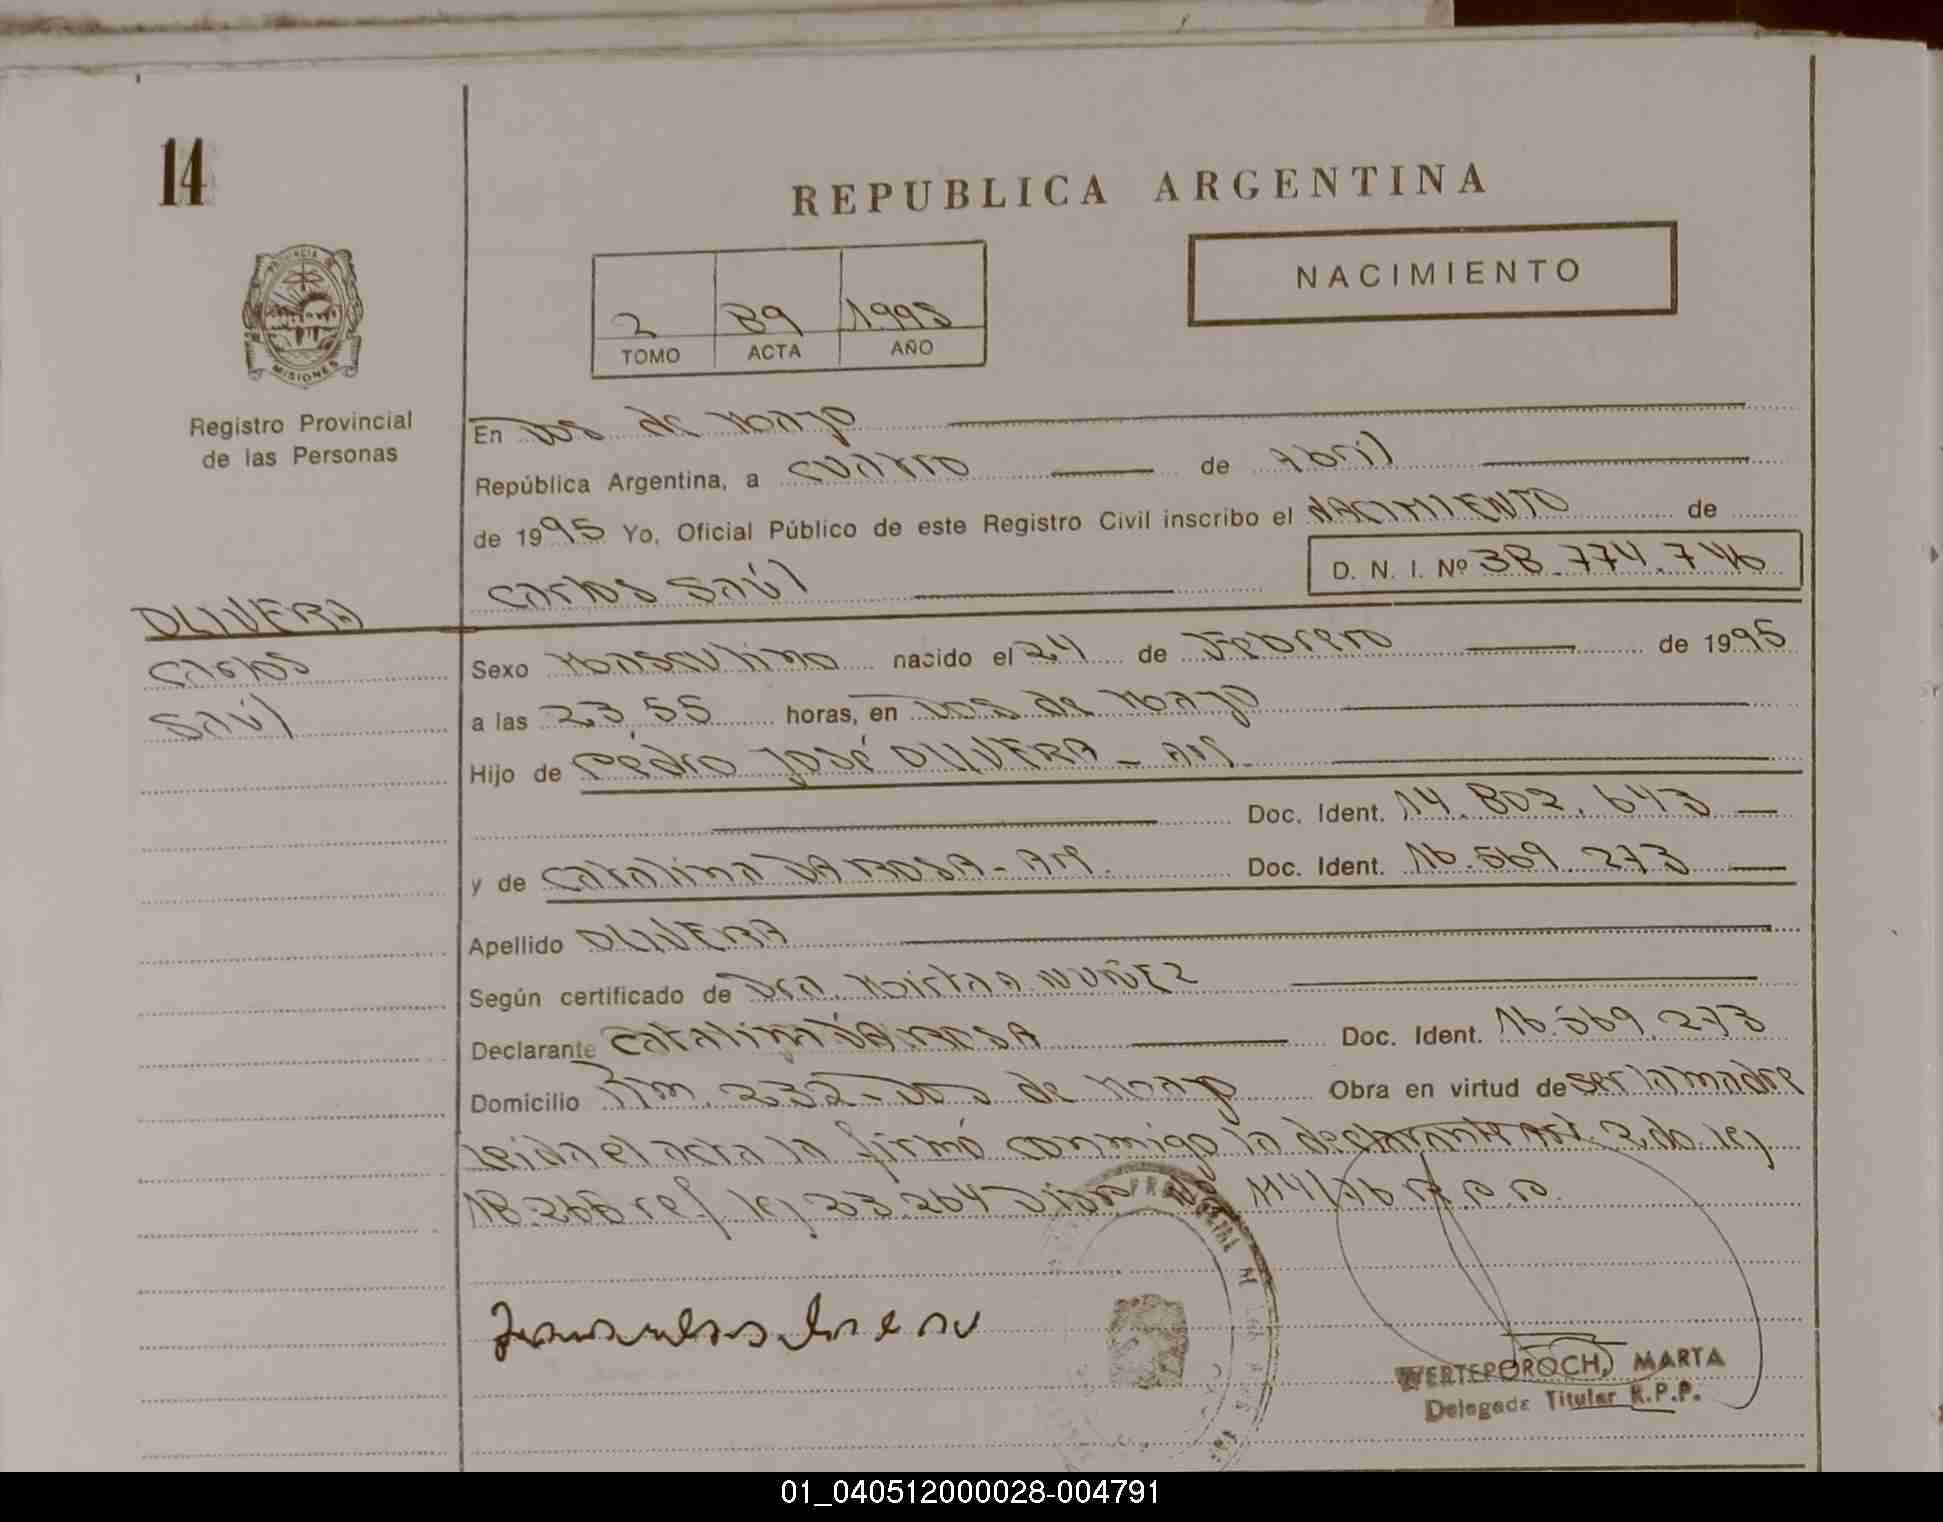 14
REPUBLICA ARGENTINA
NACIMIENTO
2 89 1995
TOMO ACTA AÑO
PROVINCIA DE
MISIONES
Registro Provincial
de las Personas
En Dos de Mayo
República Argentina, a cuatro de Abril
de 1995 Yo, Oficial Público de este Registro Civil inscribo el NACIMIENTO de
Carlos Saúl D. N. I. Nº 38.774.746
OLIVERA
Carlos
Saúl
Sexo Masculino nacido el 24 de Febrero de 1995
a las 23,55 horas, en Dos de Mayo
Hijo de Pedro José OLIVERA - Arg.
Doc. Ident. 14.802.643
y de Catalina DA ROSA - Arg. Doc. Ident. 16.569.273
Apellido OLIVERA
Según certificado de Dra. Mirta A. NUÑEZ
Declarante Catalina DA ROSA Doc. Ident. 16.569.273
Domicilio Km. 232 - Dos de Mayo Obra en virtud de ser la madre
Leida el acta la firmó conmigo la declarante Art. 2do. ley
18.268 ref. ley 23.264 114/76 R.P.P.
WERTEPOROCH, MARTA
Delegada Titular R.P.P.
01_040512000028-004791